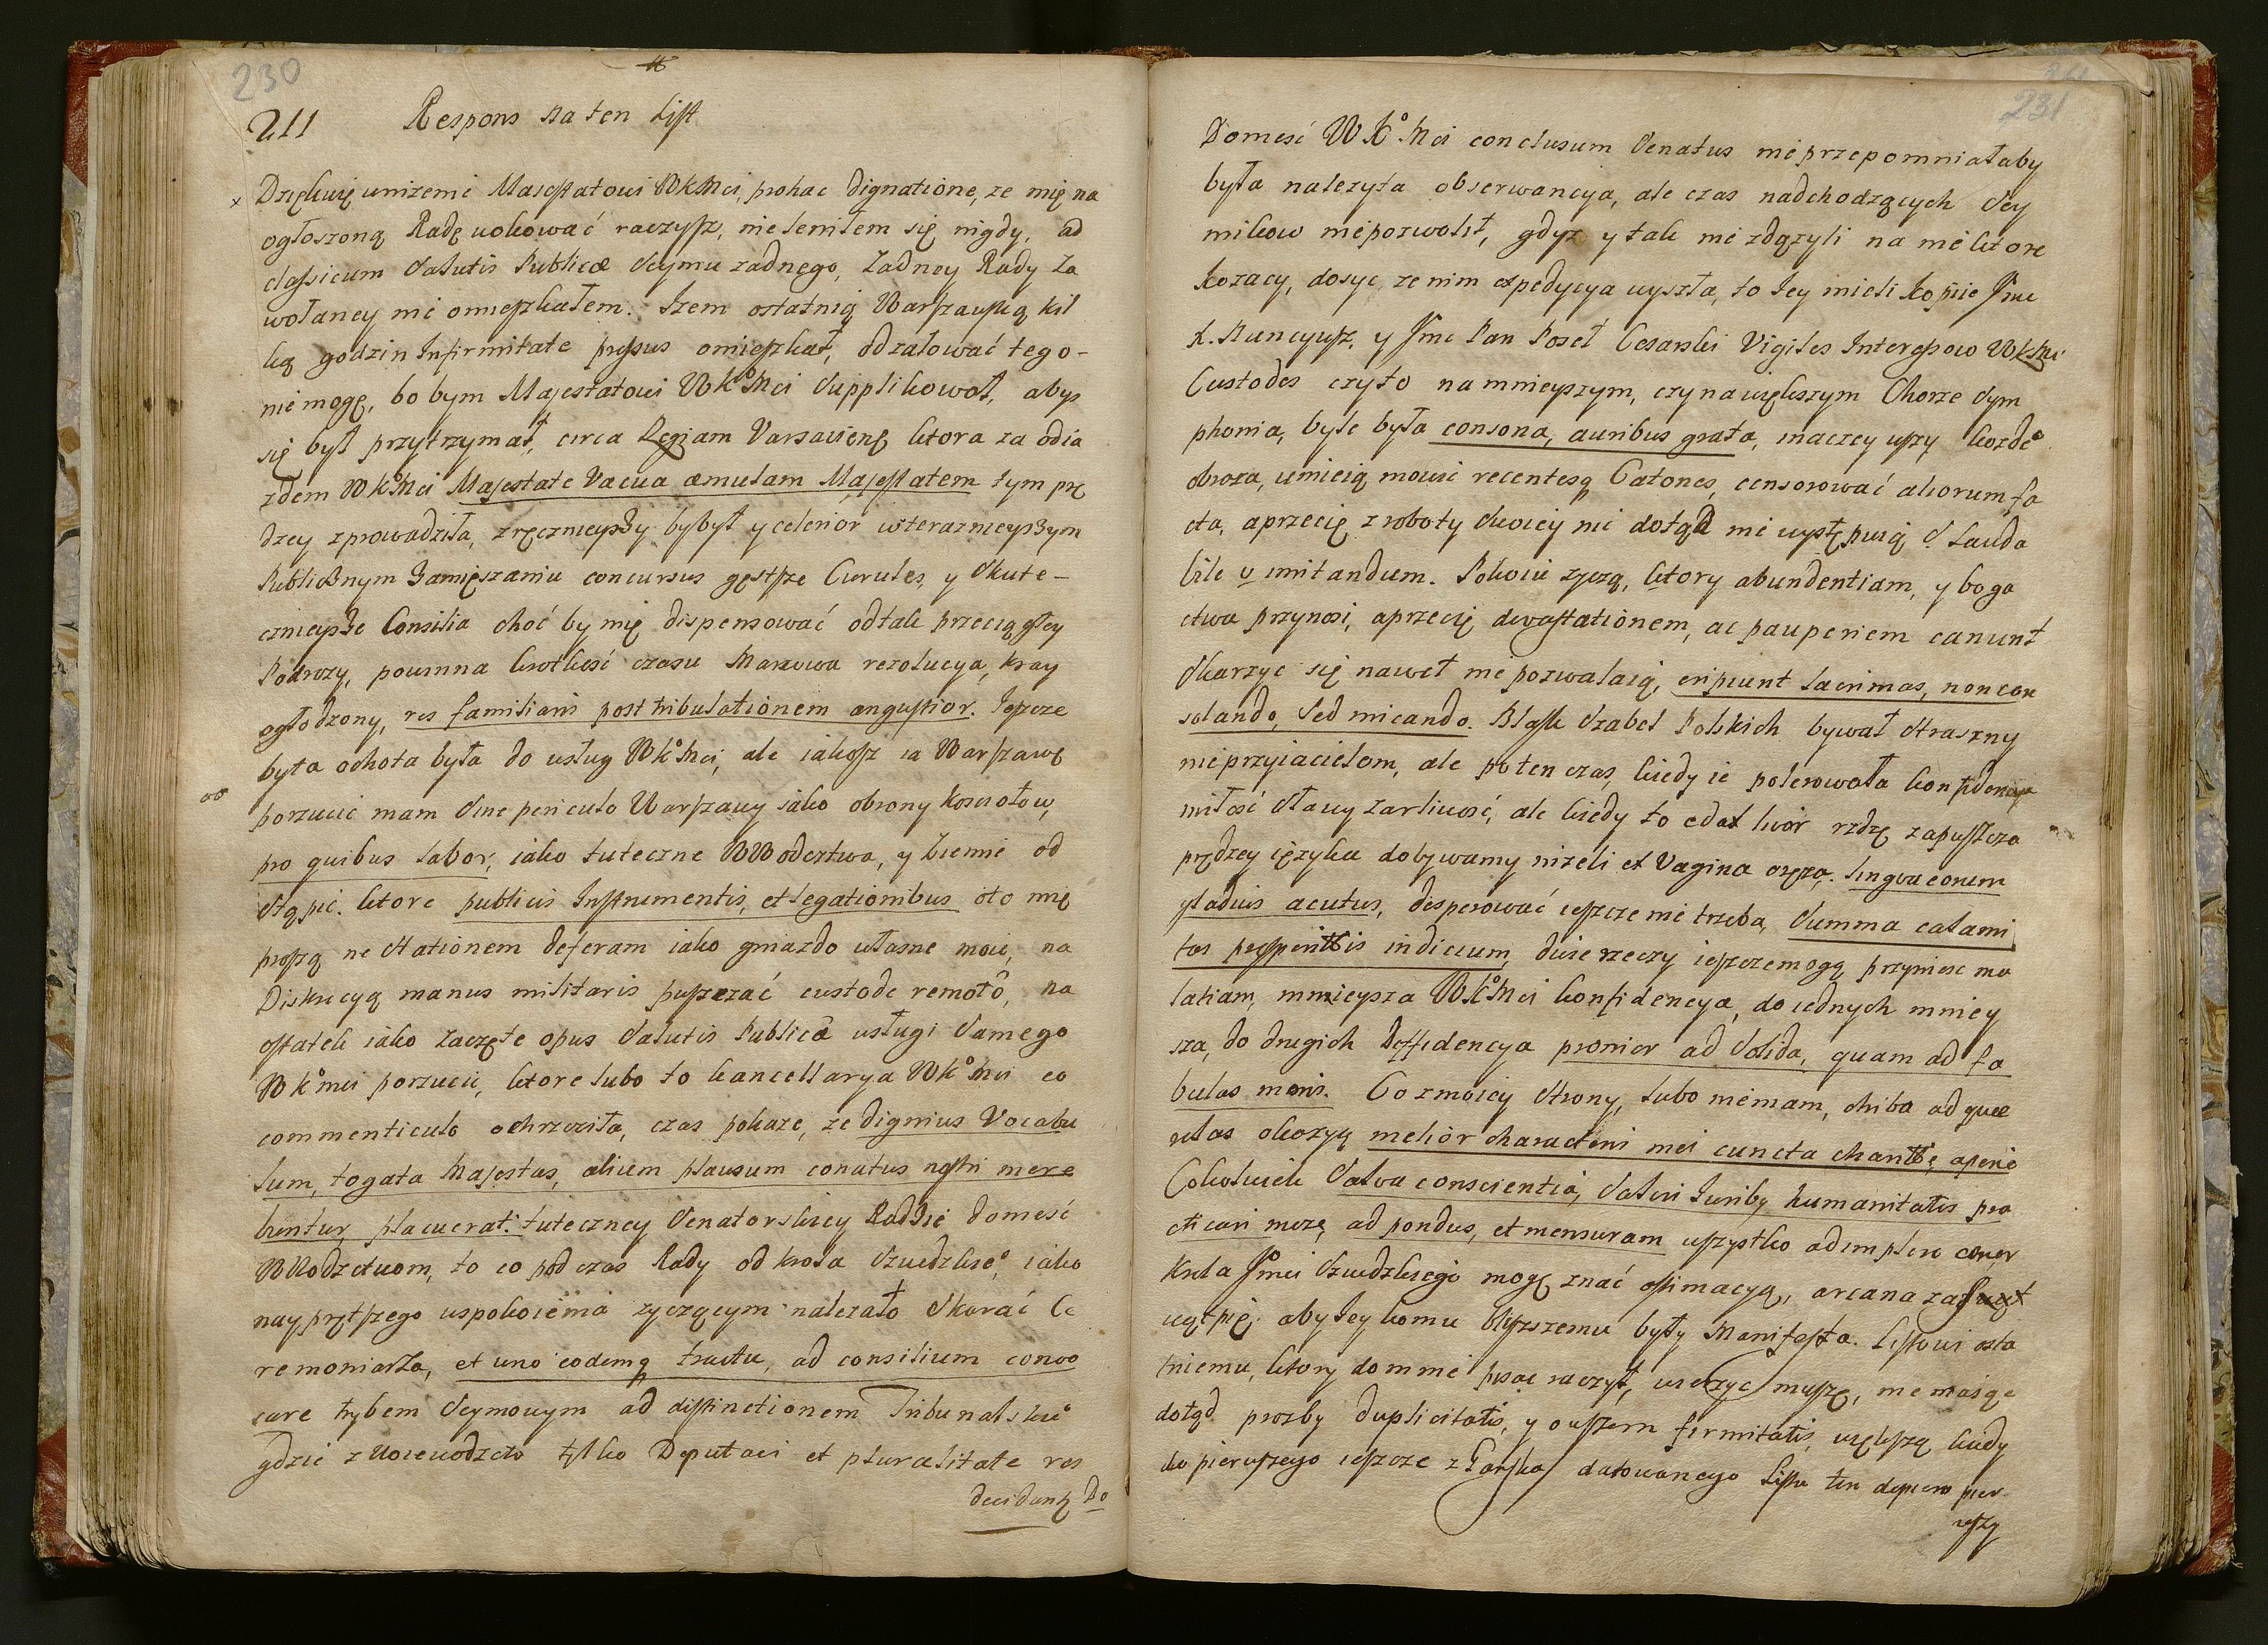 230
211 Respons na ten List
Dziękuię unizenie Maiestatowi WKMci, pro hac dignatione, ze mię na
ogłoszoną Radę wokować raczysz, nie leniłem się nigdy, ad
classicum Salutis Publicæ Seymu zadnego, Zadney Rady za
wołaney nie omieszkałem. Izem ostatnią Warszawską kil
ką godzin Infirmitate pressus omieszkał, odzałować tego-
nie mogę, bo bym Majestatowi WKoMci Supplikował, abys
się był przytrzymał, circa Regiam Varsavienę ktora za odia
zdem WKoMci Majestate Vacua æmulam Majestatem tym prę
dzey zprowadziła, zręcznieyszy byłbył y celerior wterazniejszym
Publicznym Zamięszaniu concursus gęstsze Curules, y Skute-
cznieysze Consilia choć by mię dispensować od tak przeciągłey
Podrozy, powinna krotkość czasu Marsowa rezolucya, kray
ogłodzony, res familiaris post tribulationem angustior. Jeszcze
była ochota była do usług WKoMci, ale iakosz ia Warszawę
porzucic mam sine periculo Warszawy iako obrony kosciołow,
pro quibus labor, iako tuteczne WWodeztwa, y Ziemie od
stąpic. ktore publicis Instrumentis, et legationibus oto mię
proszą ne Stationem deseram iako gniazdo własne moie, na
Diskrecyą manus militaris puszczać custode remotô, na
ostatek iako zaczęte opus Salutis Publicæ usługi Samego
WKomci porzucic, ktore lubo to kancellarya WKoMci eo
commenticulo ochrzciła, czas pokaze, ze dignius Vocabu
lum, togata Majestas, alium plausum conatus nostri mere
buntur, placuerat: tuteczney Senatorskiey Radzie domesć
WWodzctwom, to co pod czas Rady od krola Szwedzkiego, iako
nayprętszego uspokoienia zyczącym nalezało Skarać Ce
remoniarza, et uno eodemq tractu, ad consilium convo
care trybem Seymowym ad distinctionem Tribunalskiego
gdzie z Woiewodzctw tylko Deputaci et pluralitate res
decidunt Do
231
Domesć WKoMci conclusum Senatus nie przepomniałaby
była nalezyta obserwancya, ale czas nadchodzących Sey
mikow niepozwolił, gdyz y tak nie zdązyli na niektore
kozacy, dosyc, ze nim expedycya wyszła, to Jey mieli kopie Jmc
X. Nuncyusz, y Jmc Pan Poseł Cesarski Vigiles Interessow WKMci
Custodes czyto na mnieyszym, czy na większym Chorze Sym
phonia, byle była consona, auribus grata, inaczey uszy kozdego
obraza, umieią mowic recentesq Catones, censorować aliorum fa
cta, aprzecię z roboty Swoiey nic dotąd nie wystąpuią Lauda
bile v imitandum. Pokoiu zyczą, ktory abundentiam, y boga
ctwa przynosi, aprzecię devastationem, ac pauperiem canunt
Skarzyc się nawet nie pozwalaią, eripiunt lacrimas, non con
solando, Sed micando. Blask Szabel Polskich bywał straszny
nieprzyiaciełom, ale poten czas, kiedy ie polerowała konfidencya
miłość sławy zarliwość, ale kiedy to rdzę zapuszcza
prędzey ięzyka dobywamy nizeli ex Vagina oręza. lingua eorum
gladius acutus, desperować ieszcze nie trzeba, Summa calami
tas prosperittis indicium, dwie rzeczy ieszcze mogą przyniesc ma
latiam, mnieysza WKoMci konfidencya, do iednych mniey
sza, do drugich Deffidencya pronior ad Solida, quam ad fa
bulas mens. Co zmoiey strony, lubo niemam, chiba ad que
relas okazyą melior characteri mei cuncta charitte, aperio
Cokolwiek Salva conscientia, Salvi Juriby humanitatis pra
cticari moze, ad pondus, et mensuram wszystko adimplere conor
Krola Jmci Szwedzkiego mogę znać estimacyą, arcana zas
wątpię aby Jey komu bliższemu były Manifesta. Listowi osta
tniemu, ktory do mnie pisac raczył, wierzyc muszę, nie maiąc
dotąd prozby duplicitatis, y owszem firmitatis, większą kiedy
do pierwszego ieszcze z Gańska datowanego Listu ten dopiero pier
wszy